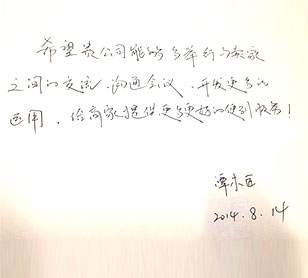 希望贵公司能够多举行与商家
之间的交流、沟通会议、开发更多的
运用，给商家提供更多更好的便利服务！
谭
2014.8.14